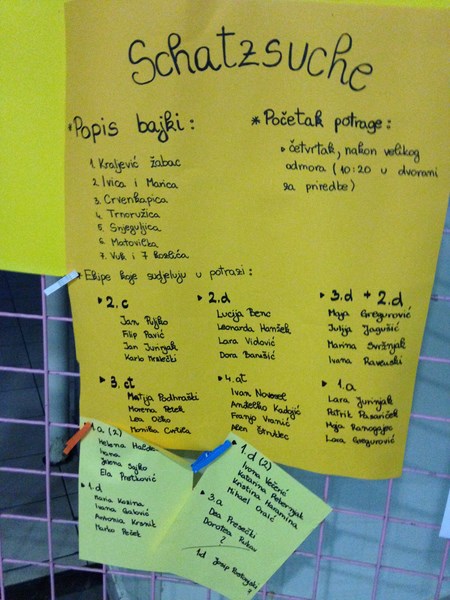 Schatzsuche
*Popis bajki:
1. Kraljević žabac
2. Ivica i Marica
3. Crvenkapica
4. Trnoružica
5. Snjeguljica
6. Matovilka
7. Vuk i 7 kozlića
* Početak potrage:
četvrtak, nakon velikog
odmora (10:20 u dvorani
za priredbe)
Ekipe koje sudjeluju u potrazi:
2. c
Jan
Filip Pavić
Jan Jurinjak
Karlo
2. d
Lucija Benc
Leonarda Hanžek
Lara Vidović
Dora Barušić
3. d + 2. d
Maja Gregurović
Julija Jagušić
Marina Svržnjak
Ivana
3. ct
Matija Podhraški
Morena Petek
Lea
Monika
4. at
Ivan Novosel
Anđelko Kadojić
Franjo Vranić
Alen Štruklec
1. a
Lara Jurinjak
Patrik Pasariček
Maja
Lara Gregurović
1. a (2)
Helena
Ivana
Jelena Sajko
Ela
1. d
Maria Kozina
Ivana Galović
Antonia
Marko Pošet
1. d (2)
Ivona
Katarina
Kristina Haramina
Mihael
3. a
Dea Presečki
Dorotea
?
1. d Josip